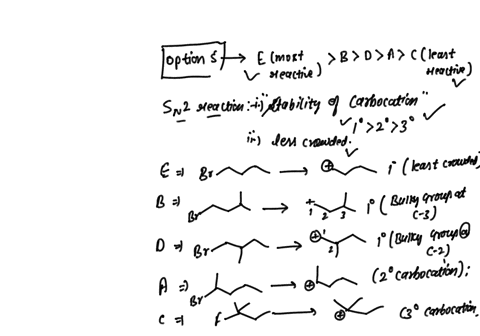 Option 5 → E (most reactive) > B > D > A > C (least reactive)
SN2 reaction:- i) "Stability of Carbocation"
1° > 2° > 3°
ii) less crowded.
E ⇒ Br → ⊕ 1° (least crowded)
B ⇒ Br → + 1 2 3 1° (Bulky group at C-3)
D ⇒ Br → ⊕ 1 2 1° (Bulky group @ C-2)
A ⇒ Br → ⊕ (2° carbocation);
C ⇒ → ⊕ (3° carbocation